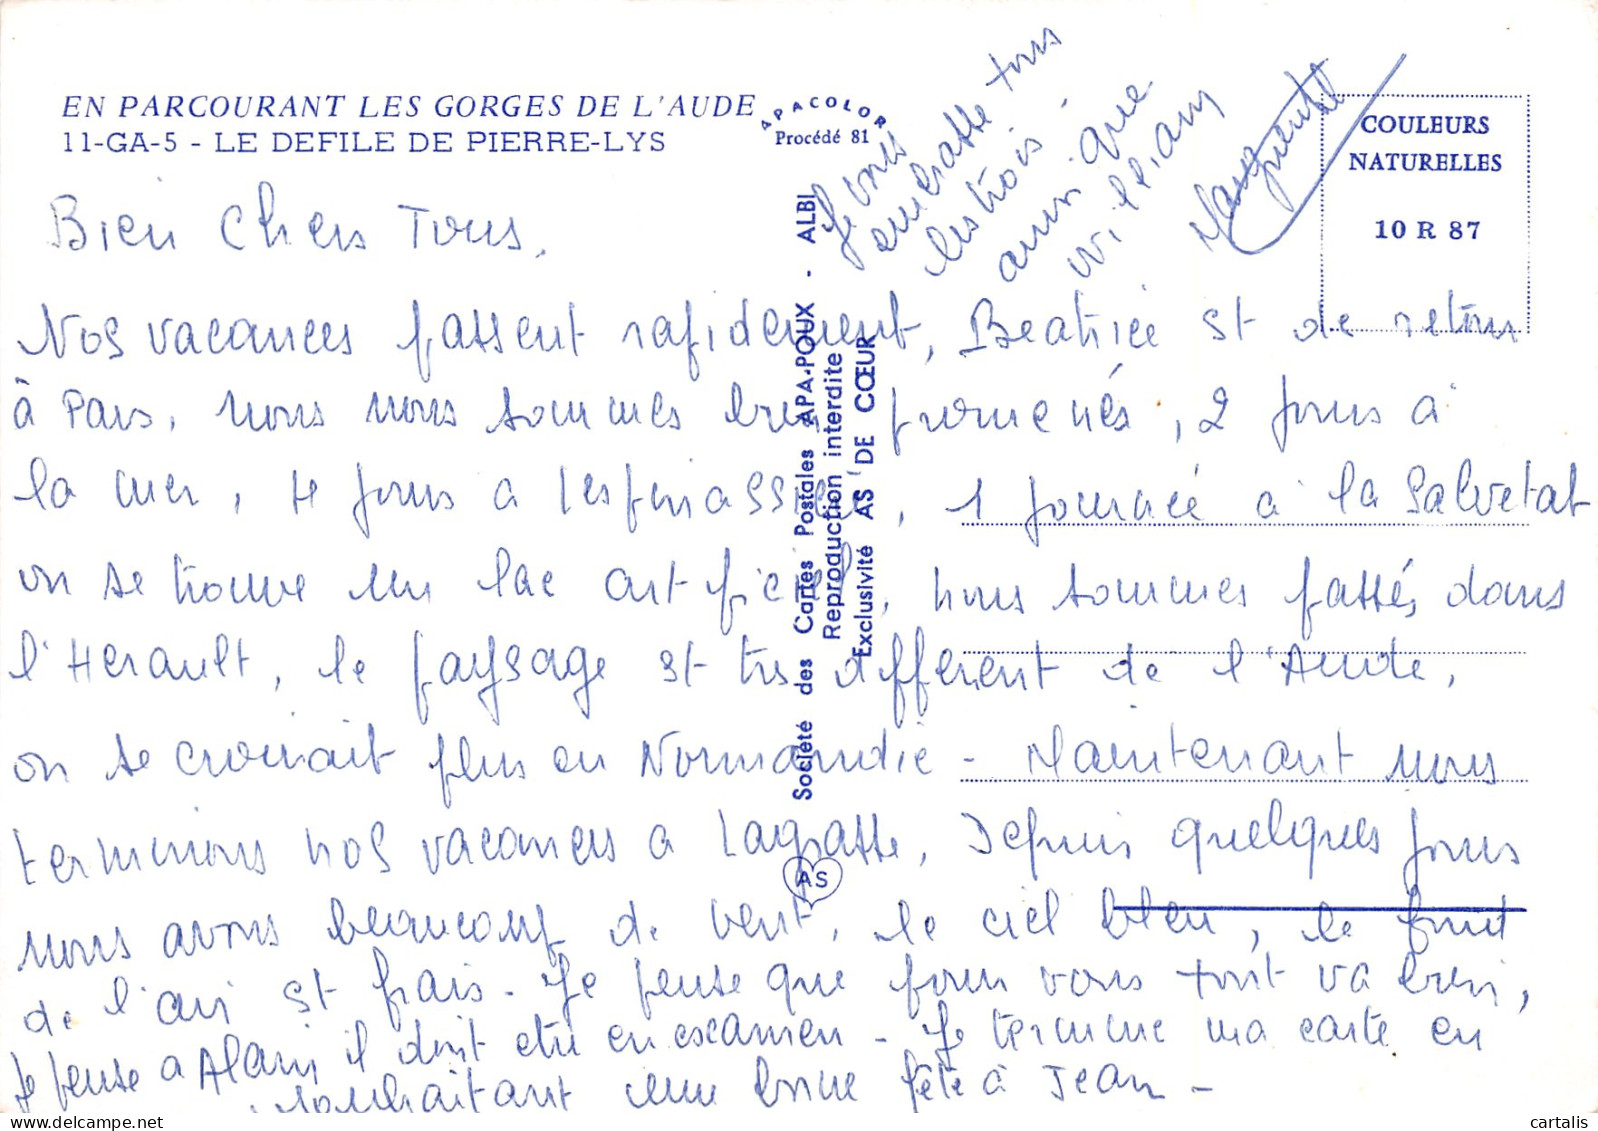 EN PARCOURANT LES GORGES DE L'AUDE
11-GA-5 - LE DEFILE DE PIERRE-LYS
APACOLOR
Procédé 81
COULEURS
NATURELLES
10 R 87
Bien Chers Tous,
Nos vacances passent rapidement, Beatrice st de retour
à Paris, nous nous sommes bien promenés, 2 jours a
la mer, 4 jours a Lespinassière, 1 journée à la Salvetat
on se trouve un lac artificiel, nous sommes passés dans
l'Herault, le paysage st tres different de l'Aude,
on se croirait plus en Normandie - Maintenant nous
terminons nos vacances a Lagrasse, Depuis quelques jours
nous avons beaucoup de vent, le ciel bleu, le fond
de l'air st frais. Je pense que pour vous tout va bien,
Je pense a Alain il doit etre en examen - Je termine ma carte en
souhaitant une bonne fête à Jean -
Je vous
embrasse tous
les trois -
ainsi que
William
Marguerite
Société des Cartes Postales APA-POUX - ALBI
Reproduction interdite
Exclusivité AS DE CŒUR
AS
cartalis